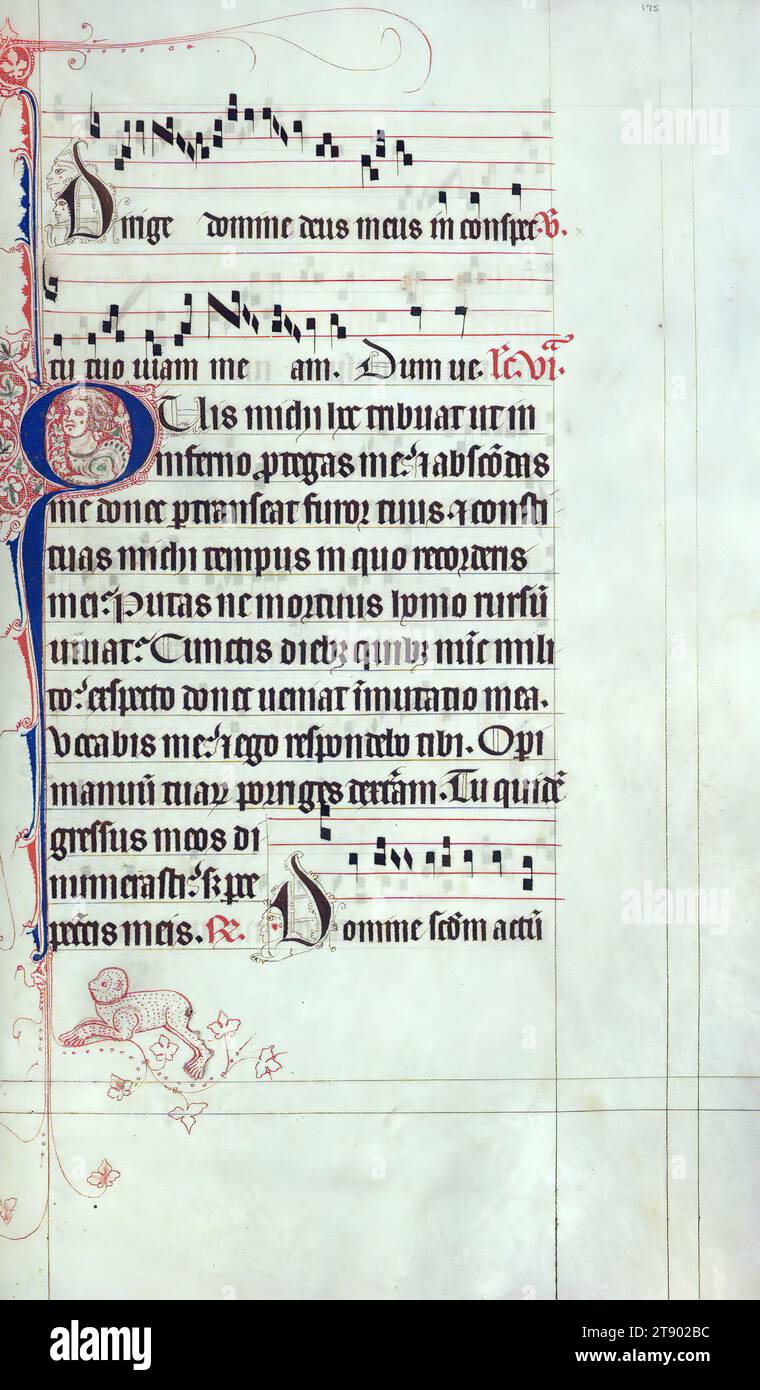 175
Dirige domine deus meus in conspec V̄.
tu tuo uiam me am. Dum ue. lc̄. viª.
QUis michi hoc tribuat ut in
inferno ꝓtegas me: ⁊ abscōdas
me donec ꝑtranseat furor tuus. ⁊ consti
tuas michi tempus in quo recorderis
mei: Putas ne mortuus homo rursū
uiuat: Cunctis diebꝫ quibꝫ nūc mili
to: exspecto donec ueniat īmutatio mea.
Vocabis me: ⁊ ego respondebo tibi. Oꝑi
manuū tuaꝝ porriges dextram. Tu quidē
gressus meos di
numerasti: sꝫ parce
peccatis meis. R̄. Domine scd̄m actū
alamy
alamy
alamy
Image ID: 2T902BC
www.alamy.com